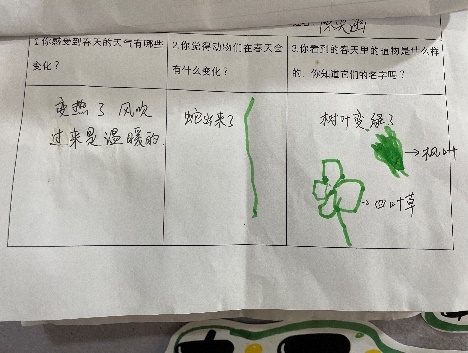 1.你感受到春天的天气有哪些
变化？
2.你觉得动物们在春天会
有什么变化？
3.你看到的春天里的植物是什么样
的，你知道它们的名字吗？
变热了 风吹
过来是温暖的
蛇出来了
树叶变绿了
枫叶
四叶草